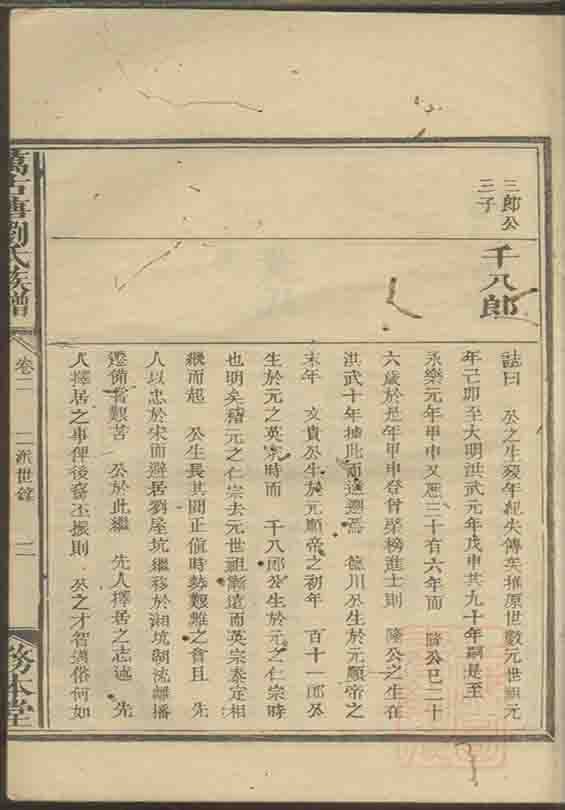 三郎公
三子
千八郎
誌曰　公之生歿年紀失傳矣推原世數元世祖元
年己卯至大明洪武元年戊申共九十年嗣是至
永樂元年甲申又歷三十有六年而　隆公已二十
六歲於是年甲申登曾棨榜進士則　隆公之生在
洪武十年據此而遞遡焉　德川公生於元順帝之
末年　文貴公生於元順帝之初年　百十一郎公
生於元之英宗時而　千八郎公生於元之仁宗時
也明矣稽元之仁宗去元世祖漸遠而英宗泰定相
繼而起　公生長其間正值時勢艱難之會且　先
人以忠於宋而避居劉屋坑繼移於湘坑湖流離播
遷備嘗艱苦　公於此繼　先人擇居之志述　先
人擇居之事俾後裔丕振則　公之才智邁俗何如
萬古塘劉氏族譜
卷二
二派世錄
二
務本堂